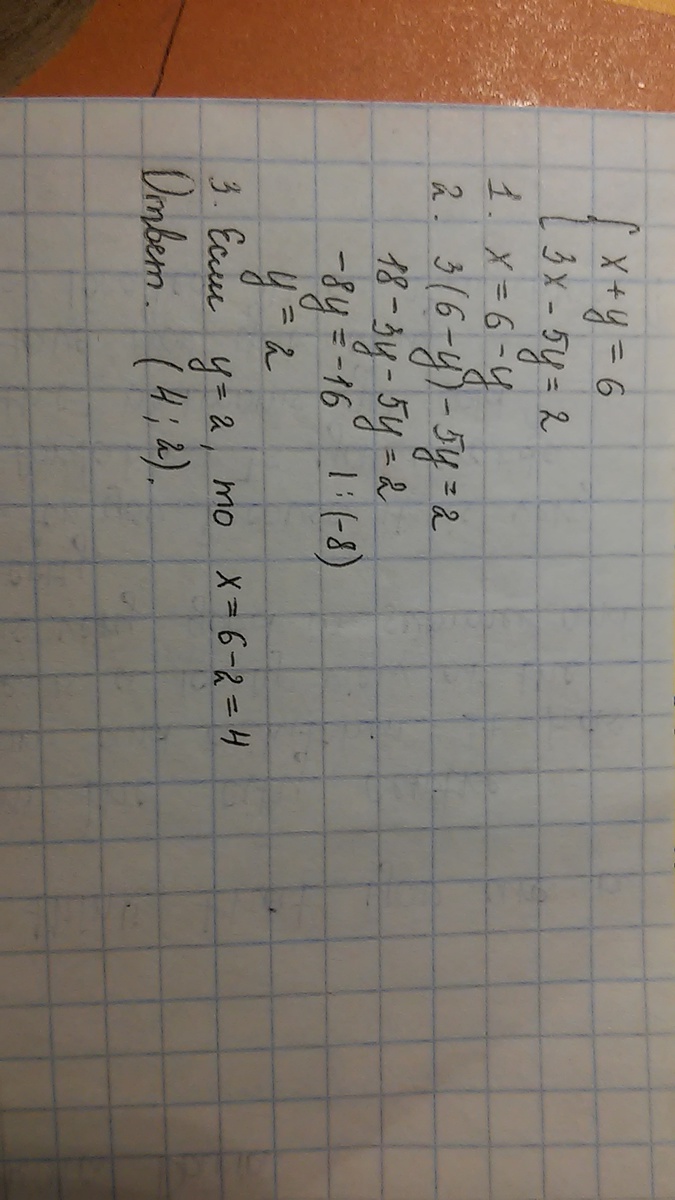 { x + y = 6
{ 3x - 5y = 2
1. x = 6 - y
2. 3(6 - y) - 5y = 2
18 - 3y - 5y = 2
-8y = -16 | : (-8)
y = 2
3. Если y = 2, то x = 6 - 2 = 4
Ответ. (4; 2).